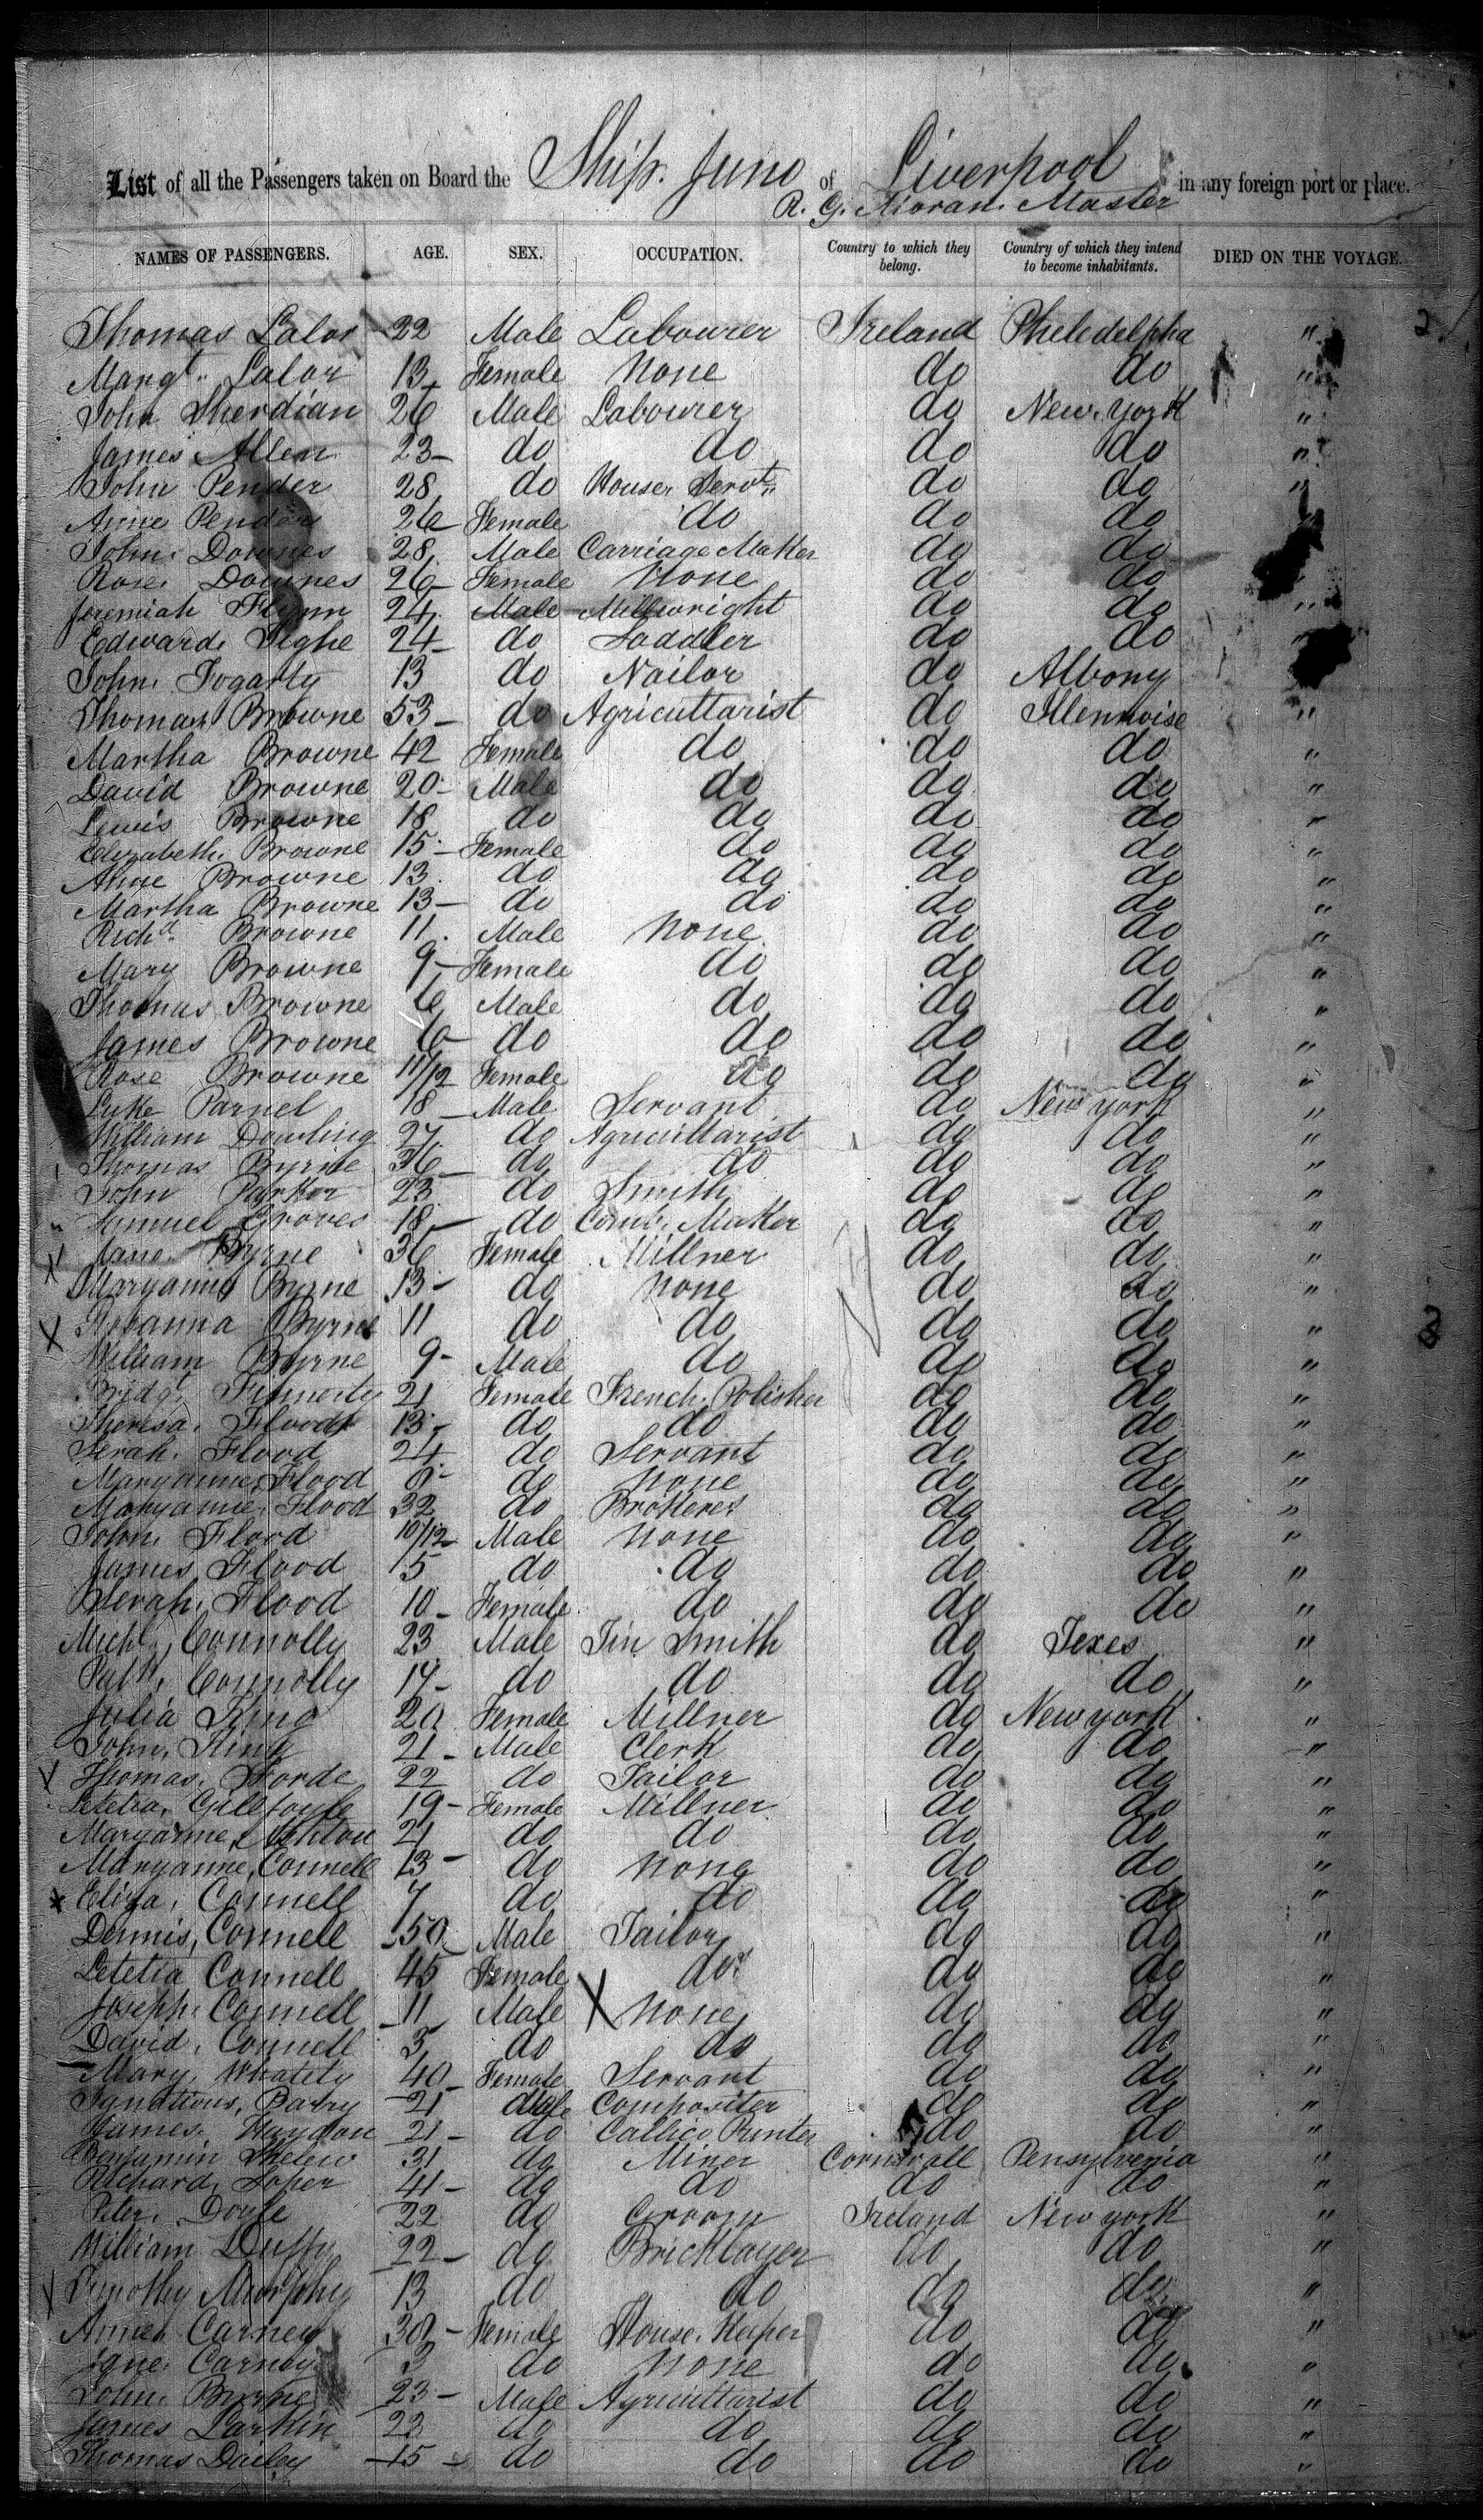 List of all the Passengers taken on Board the Ship. Juno of Liverpool in any foreign port or place.
R. G. Moran. Master
NAMES OF PASSENGERS. AGE. SEX. OCCUPATION. Country to which they belong. Country of which they intend to become inhabitants. DIED ON THE VOYAGE.
Thomas Lalor 22 Male Labourer Ireland Pheledelpha " 2
Margt. Lalor 13 Female None do do "
John Sherdian 26 Male Labourer do New York "
James Allen 23 do do do do "
John Pender 28 do House Servt. do do "
Anne Pender 26 Female do do do
John Downes 28 Male Carriage Maker do do
Rose Downes 26 Female None do do "
Jeremiah Flynn 24 Male Millwright do do "
Edward Tighe 24 do Saddler do do "
John Fogarty 13 do Nailor do Albony
Thomas Browne 53 do Agricultarist do Illennoise "
Martha Browne 42 Female do do do "
David Browne 20 Male do do do "
Lewis Browne 18 do do do do "
Elizabeth Browne 15 Female do do do "
Browne 13 do do do do "
Martha Browne 13 do do do do "
Richd. Browne 11 Male None do do "
Mary Browne 9 Female do do do "
Thomas Browne 6 Male do do do "
James Browne 6 do do do do "
Rose Browne 11/12 Female do do do "
Luke Parnel 18 Male Servant do New York "
William Dowling 27 do Agricultarist do do "
Thomas Byrne 36 do do do do "
John Parker 23 do Smith do do "
Samuel Groves 18 do Comb Maker do do "
Jane Byrne 36 Female Millner do do "
Maryanne Byrne 13 do None do do "
Rosanna Byrne 11 do do do do "
William Byrne 9 Male do do do "
Bridgt. Finnerty 21 Female French Polisher do do "
Theresa Flood 13 do do do do "
Serah Flood 24 do Servant do do "
Maryanne Flood 8 do None do do "
Maryanne Flood 32 do do do "
John Flood 10/12 Male None do do "
James Flood 5 do do do do "
Serah Flood 10 Female do do do "
Michl. Connolly 23 Male Tin Smith do Texes "
Patk. Connolly 17 do do do do "
Julia King 20 Female Millner do New york "
John King 21 Male Clerk do do "
Thomas Forde 22 do Tailor do do "
Letetia Gilfoyle 19 Female Millner do do "
Maryanne 21 do do do do "
Maryanne Connell 13 do None do do "
Eliza Connell 7 do do do do "
Dennis Connell 50 Male Tailor do do "
Letetia Connell 45 Female do do do "
Joseph Connell 11 Male None do do "
David Connell 5 do do do do "
Mary Whatity 40 Female Servant do do "
Ignatious Barry 21 Male Compositer do do "
James Haydon 21 do Callico Printer do do "
Benjamin 31 do Miner Cornwall Pensylvenia "
Richard Loper 41 do do do do "
Peter Doyle 22 do Groom Ireland New york "
William Duffy 22 do Bricklayer do do "
Timothy Murphy 13 do do do do "
Annes Carney 30 Female House Keeper do do "
Jane Carney 3 do None do do "
John Byrne 23 Male Agricultarist do do "
James Larkin 23 do do do do "
Thomas Dailey 15 do do do do "